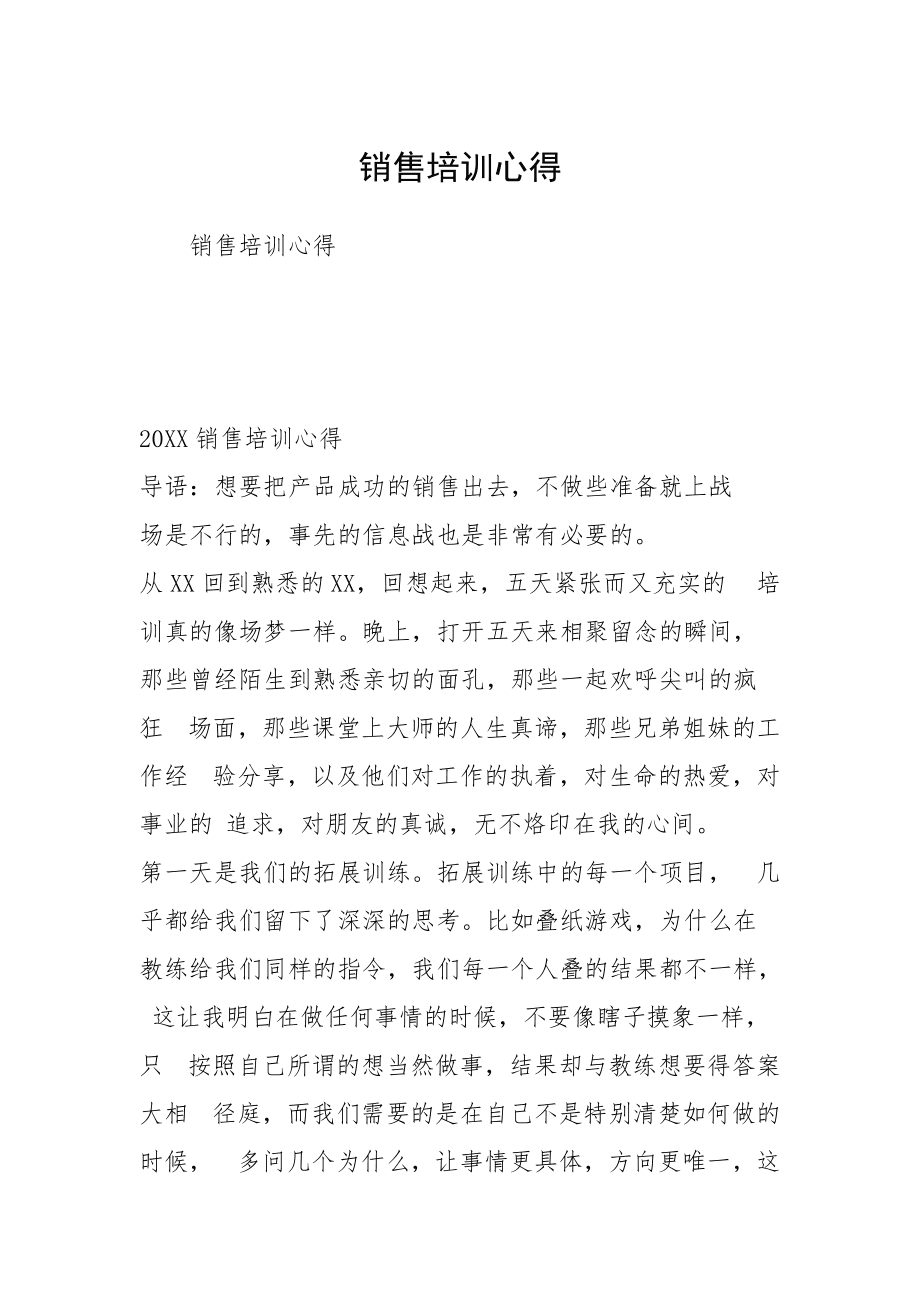 销售培训心得
销售培训心得
20XX 销售培训心得
导语：想要把产品成功的销售出去，不做些准备就上战
场是不行的，事先的信息战也是非常有必要的。
从 XX 回到熟悉的 XX，回想起来，五天紧张而又充实的 培
训真的像场梦一样。晚上，打开五天来相聚留念的瞬间，
那些曾经陌生到熟悉亲切的面孔，那些一起欢呼尖叫的疯
狂 场面，那些课堂上大师的人生真谛，那些兄弟姐妹的工
作经 验分享，以及他们对工作的执着，对生命的热爱，对
事业的 追求，对朋友的真诚，无不烙印在我的心间。
第一天是我们的拓展训练。拓展训练中的每一个项目， 几
乎都给我们留下了深深的思考。比如叠纸游戏，为什么在
教练给我们同样的指令，我们每一个人叠的结果都不一样，
这让我明白在做任何事情的时候，不要像瞎子摸象一样，
只 按照自己所谓的想当然做事，结果却与教练想要得答案
大相 径庭，而我们需要的是在自己不是特别清楚如何做的
时候， 多问几个为什么，让事情更具体，方向更唯一，这